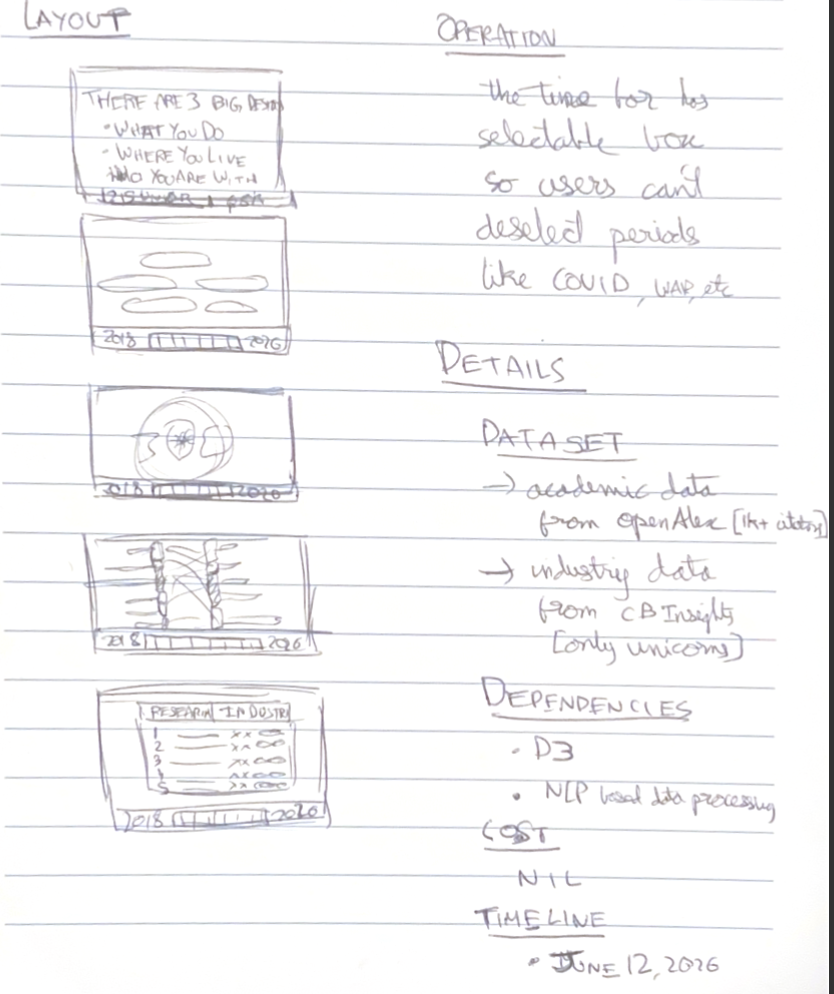 LAYOUT
THERE ARE 3 BIG
• WHAT YOU DO
- WHERE YOU LIVE
WHO YOU ARE WITH
2018 2026
2018 2020
2018 2026
RESEARCH INDUSTRY
1 xx
2 xx
3 xx
4 xx
5 xx
2018 2020
OPERATION
the time bar has
selectable box
so users can't
deselect periods
like COVID, WAR, etc
DETAILS
DATASET
→ academic data
from openAlex [1k+ citation]
→ industry data
from CB Insights
[only unicorns]
DEPENDENCIES
• D3
• NLP based data processing
COST
NIL
TIMELINE
• JUNE 12, 2026